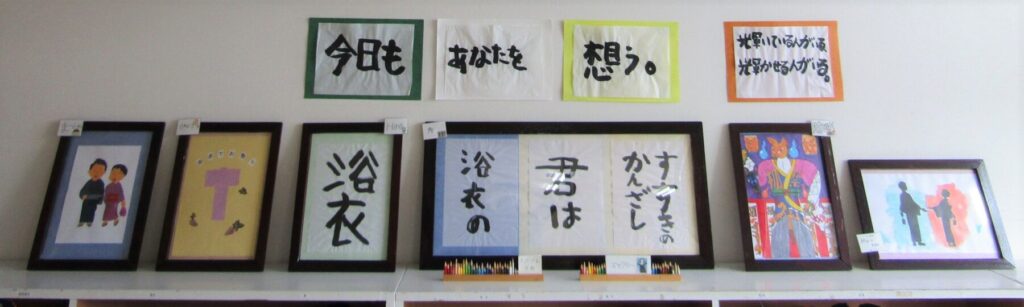 今日も
あなたを
想う。
輝いている人がいる、
輝かせる人がいる。
浴衣
浴衣の
君は
すすきの
かんざし